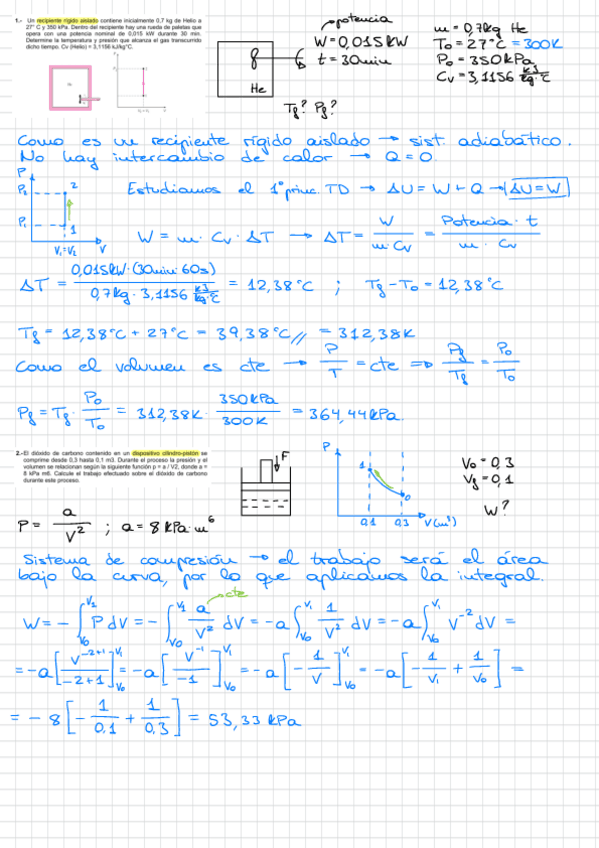 1.- Un recipiente rígido aislado contiene inicialmente 0,7 kg de Helio a
27° C y 350 kPa. Dentro del recipiente hay una rueda de paletas que
opera con una potencia nominal de 0,015 kW durante 30 min.
Determine la temperatura y presión que alcanza el gas transcurrido
dicho tiempo. Cv (Helio) = 3,1156 kJ/kg°C.
potencia
W = 0,015 kW
t = 30 min
He
m = 0,7kg He
To = 27°C = 300K
Po = 350 kPa
Cv = 3,1156 kJ/kg·°C
Tf? Pf?
Como es un recipiente rígido aislado → sist. adiabático.
No hay intercambio de calor → Q = 0.
P
P2
2
P1
1
V1=V2
V
Estudiamos el 1º princ. TD → ΔU = W + Q → ΔU = W
W = m · Cv · ΔT → ΔT = W / m·Cv = Potencia · t / m · Cv
ΔT = 0,015kW·(30min·60s) / 0,7kg · 3,1156 kJ/kg·°C = 12,38°C ; Tf - To = 12,38°C
Tf = 12,38°C + 27°C = 39,38°C // = 312,38K
Como el volumen es cte → P/T = cte => Pf/Tf = Po/To
Pf = Tf · Po/To = 312,38K · 350kPa/300K = 364,44kPa.
2.- El dióxido de carbono contenido en un dispositivo cilindro-pistón se
comprime desde 0,3 hasta 0,1 m3. Durante el proceso la presión y el
volumen se relacionan según la siguiente función p = a / V2, donde a =
8 kPa m6. Calcule el trabajo efectuado sobre el dióxido de carbono
durante este proceso.
F
P
1
0
0,1 0,3 V(m³)
Vo = 0,3
Vf = 0,1
W?
P = a / V² ; a = 8 kPa·m⁶
Sistema de compresión → el trabajo será el área
bajo la curva, por lo que aplicamos la integral.
cte
W = - ∫Vo^V2 P dV = - ∫Vo^V1 a/V² dV = -a ∫Vo^V1 1/V² dV = -a ∫Vo^V1 V⁻² dV =
= -a [V⁻²⁺¹ / -2+1]Vo^V1 = -a [V⁻¹ / -1]Vo^V1 = -a [- 1/V]Vo^V1 = -a [- 1/V1 + 1/Vo] =
= - 8 [- 1/0,1 + 1/0,3] = 53,33 kPa